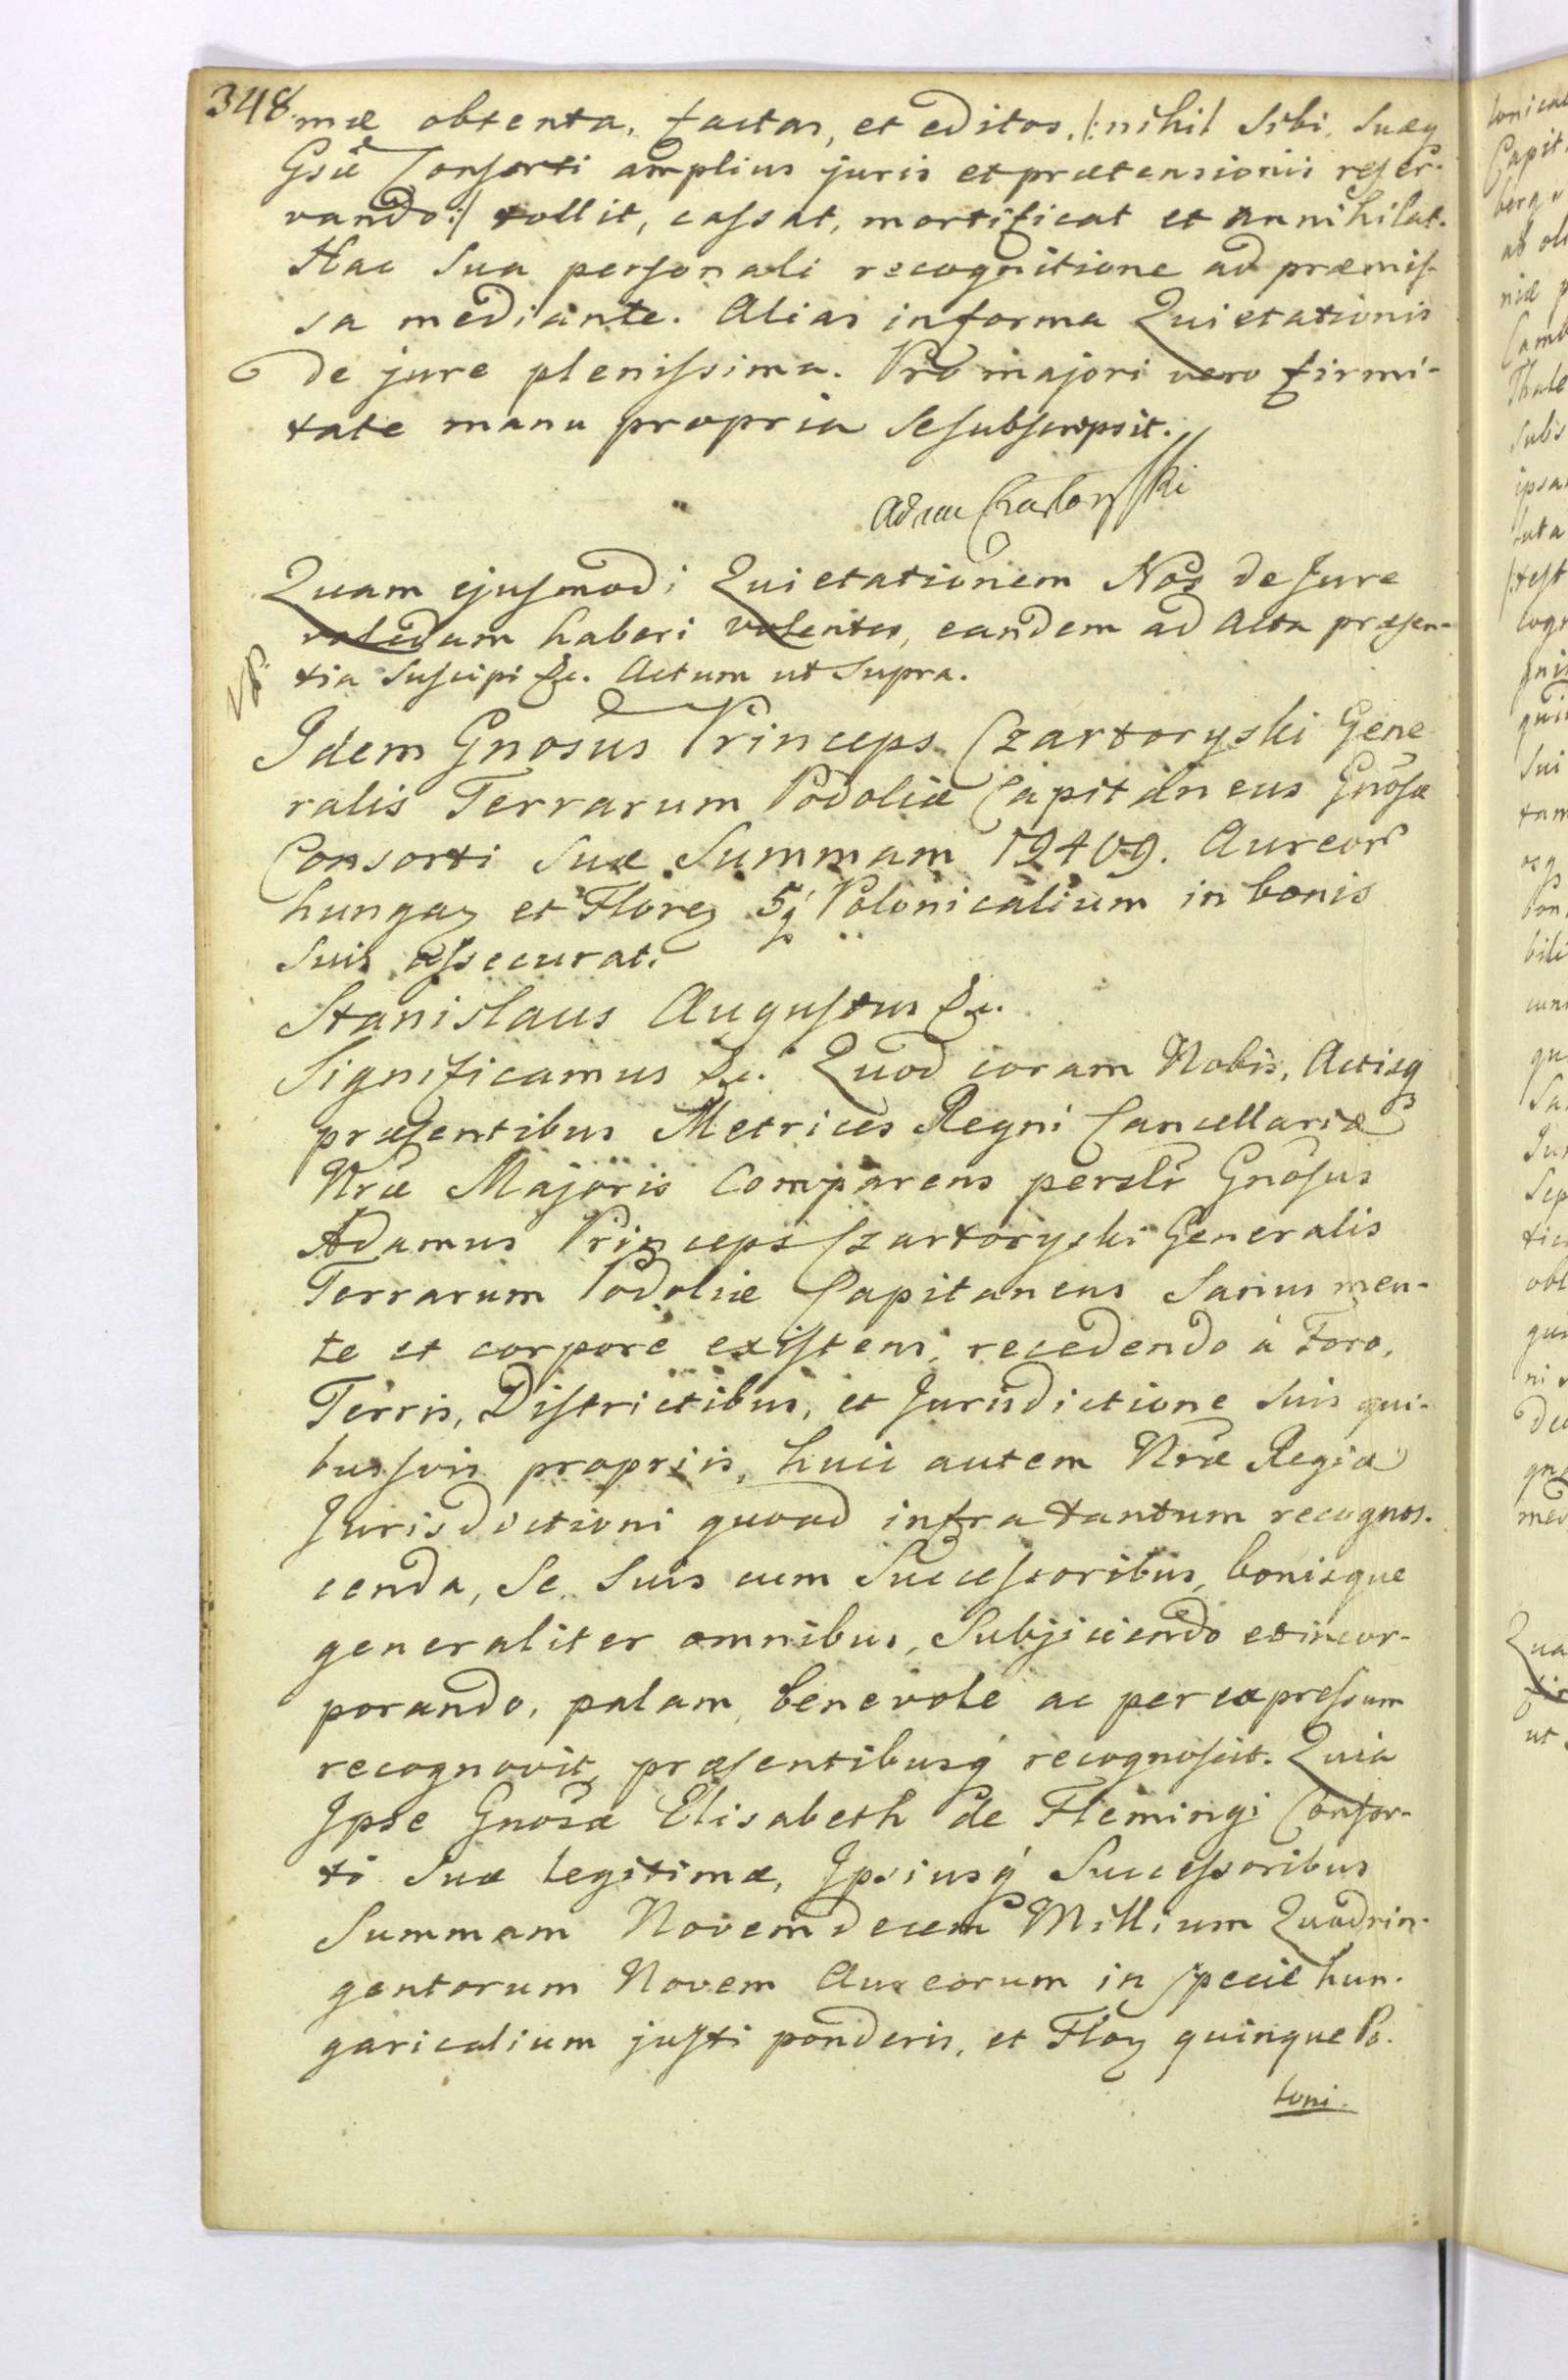 348.
mæ obtenta, factas, et editos, /:nihil Sibi, Suæq
Gsæ Consorti amplius juris et prætensionis reser-
vando:/ tollit, cassat, mortificat et annihilat.
Hac Sua personali recognitione ad præmis-
sa mediante. Alias informa Quietationis
de jure plenissima. Pro majori vero firmi-
tate manu propria Sesubscripsit.
Adam Czartoryski
Quam ejusmodi Quietationem Nos de Jure
validam haberi volentes, eandem ad Acta præsen-
tia Suscipi &c. Actum ut Supra.
Idem Gnosus Princeps Czartoryski Gene
ralis Terrarum Podoliæ Capitaneus Gnosæ
Consorti Suæ Summam 19409. Aureor
hungaq et Floreq 5q Polonicalium in bonis
Suis assecurat.
Stanislaus Augustus &c.
Significamus &c. Quod coram Nobis, Actisq
præsentibus Metrices Regni Cancellariæ
Nræ Majoris Comparens persltr Gnosus
Adamus Princeps Czartoryski Generalis
Terrarum Podoliæ Capitaneus Sanus men-
te et corpore existens, recedendo à Foro,
Terris, Districtibus, et Jurisdictione Suis qui-
busvis propriis, huic autem Nræ Regiæ
Jurisdictioni quoad infra tantum recognos-
cenda, Se Suis cum Successoribus, bonisque
generaliter omnibus, Subjiciendo etincor-
porando, palam, benevole ac per expressum
recognovit, præsentibusq recognoscit. Quia
Ipse Gnosæ Elisabeth de Flemingi Consor-
ti Suæ legitimæ, Ipsiusq Successoribus
Summam Novemdecem Millium Quadrin-
gentorum Novem Aureorum in Specie hun-
garicalium justi ponderis, et Floq quinque Po-
loni-